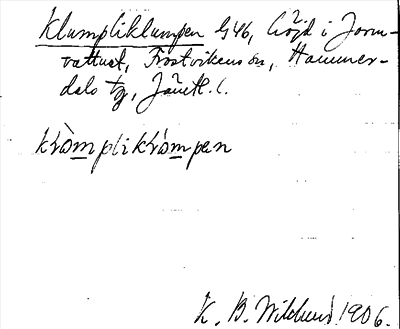 Klumpliklumpen G46, höjd i Jorm-
vattnet, Frostvikens sn, Hammer-
dals tg, Jämtl. l.
kròmplikrómpen
K. B. Wiklund 1906.